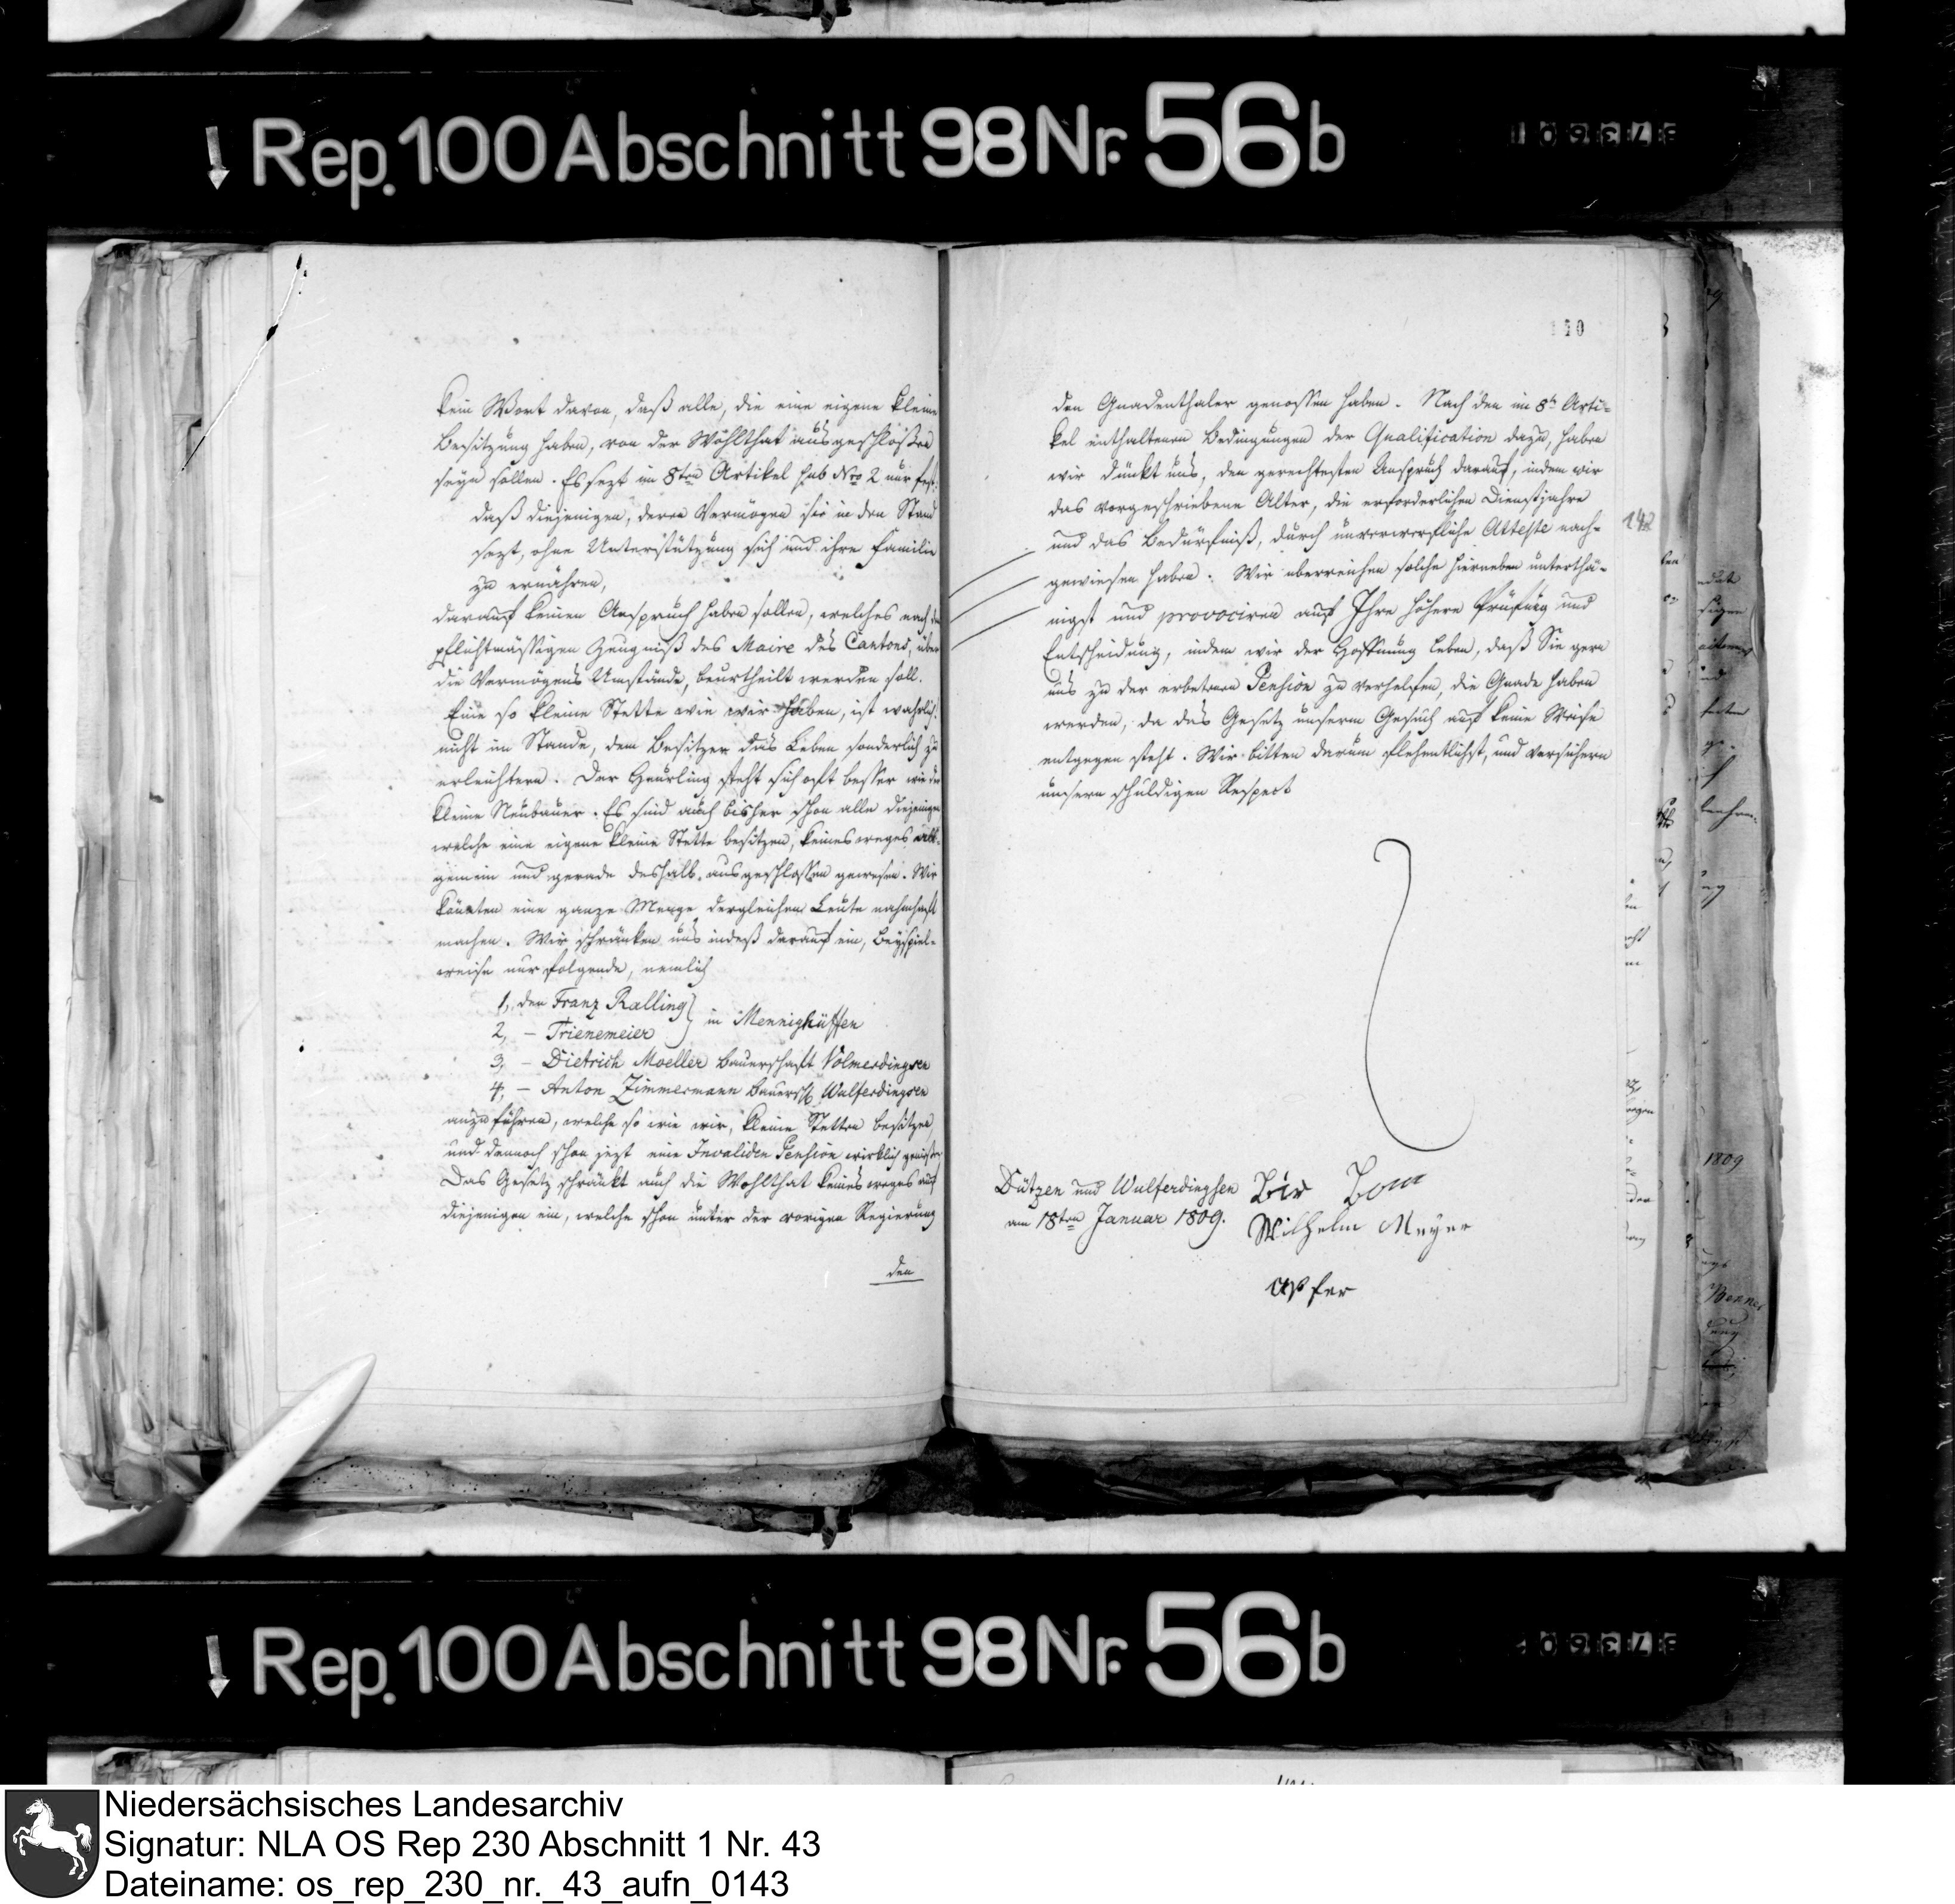 Rep. 100 Abschnitt 98 Nr. 56b
kein Wort davon, daß alle, die eine eigene kleine
Besitzung haben, von der Wohlthat ausgeschloßen
seyn sollen. Es sezt im 8ten Artikel sub Nro 2 nur fest:
daß diejenigen, deren Vermögen sie in den Stand
sezt, ohne Unterstützung sich und ihre Familie
zu ernähren,
darauf keinen Anspruch haben sollen, welches nach dem
pflichtmässigen Zeugniß des Maire des Cantons, über
die Vermögens Umstände, beurtheilt werden soll.
Eine so kleine Stette wie wir haben, ist wahrlich
nicht im Stande, dem Besitzer das Leben sonderlich zu
erleichtern. Der Heurling steht sich oft besser wie der
kleine Neubauer. Es sind auch bisher schon alle diejenigen
welche eine eigene kleine Stette besitzen, keinesweges all-
gemein und gerade deshalb ausgeschlossen gewesen. Wir
könnten eine ganze Menge dergleichen Leute nahmhaft
machen. Wir schränken uns indeß darauf ein, Beyspiel-
weise nur folgende, nemlich
1, den Franz Ralling
2, – Trienemeier } in Mennighüffen
3, – Dietrich Moeller Bauerschaft Volmerdingsen
4, – Anton Zimmermann Bauersch. Wulferdingsen
anzuführen, welche so wie wir, kleine Stetten besitzen
und dennoch schon jezt eine Invaliden Pension wirklich genießen
Das Gesetz schränkt auch die Wohlthat keinesweges auf
diejenigen ein, welche schon unter der vorigen Regierung
den
den Gnadenthaler genossen haben. Nach den im 8t Arti-
kel enthaltenen Bedingungen der Qualification dazu, haben
wir dünkt uns, den gerechtesten Anspruch darauf, indem wir
das vorgeschriebene Alter, die erforderlichen Dienstjahre
und das Bedürfniß, durch unverwerfliche Atteste nach-
gewiesen haben. Wir überreichen solche hierneben unterthä-
nigst und provociren auf Ihre höhere Prüfung und
Entscheidung, indem wir der Hoffnung leben, daß Sie gern
uns zu der erbetenen Pension zu verhelfen, die Gnade haben
werden, da das Gesetz unserm Gesuch auf keine Weise
entgegen steht. Wir bitten darum flehentlichst, und versichern
unsern schuldigen Respect
142
Dützen und Wulferdingsen
am 18ten Januar 1809.
Wilhelm Meyer
1809
Rep. 100 Abschnitt 98 Nr. 56b
Niedersächsisches Landesarchiv
Signatur: NLA OS Rep 230 Abschnitt 1 Nr. 43
Dateiname: os_rep_230_nr._43_aufn_0143